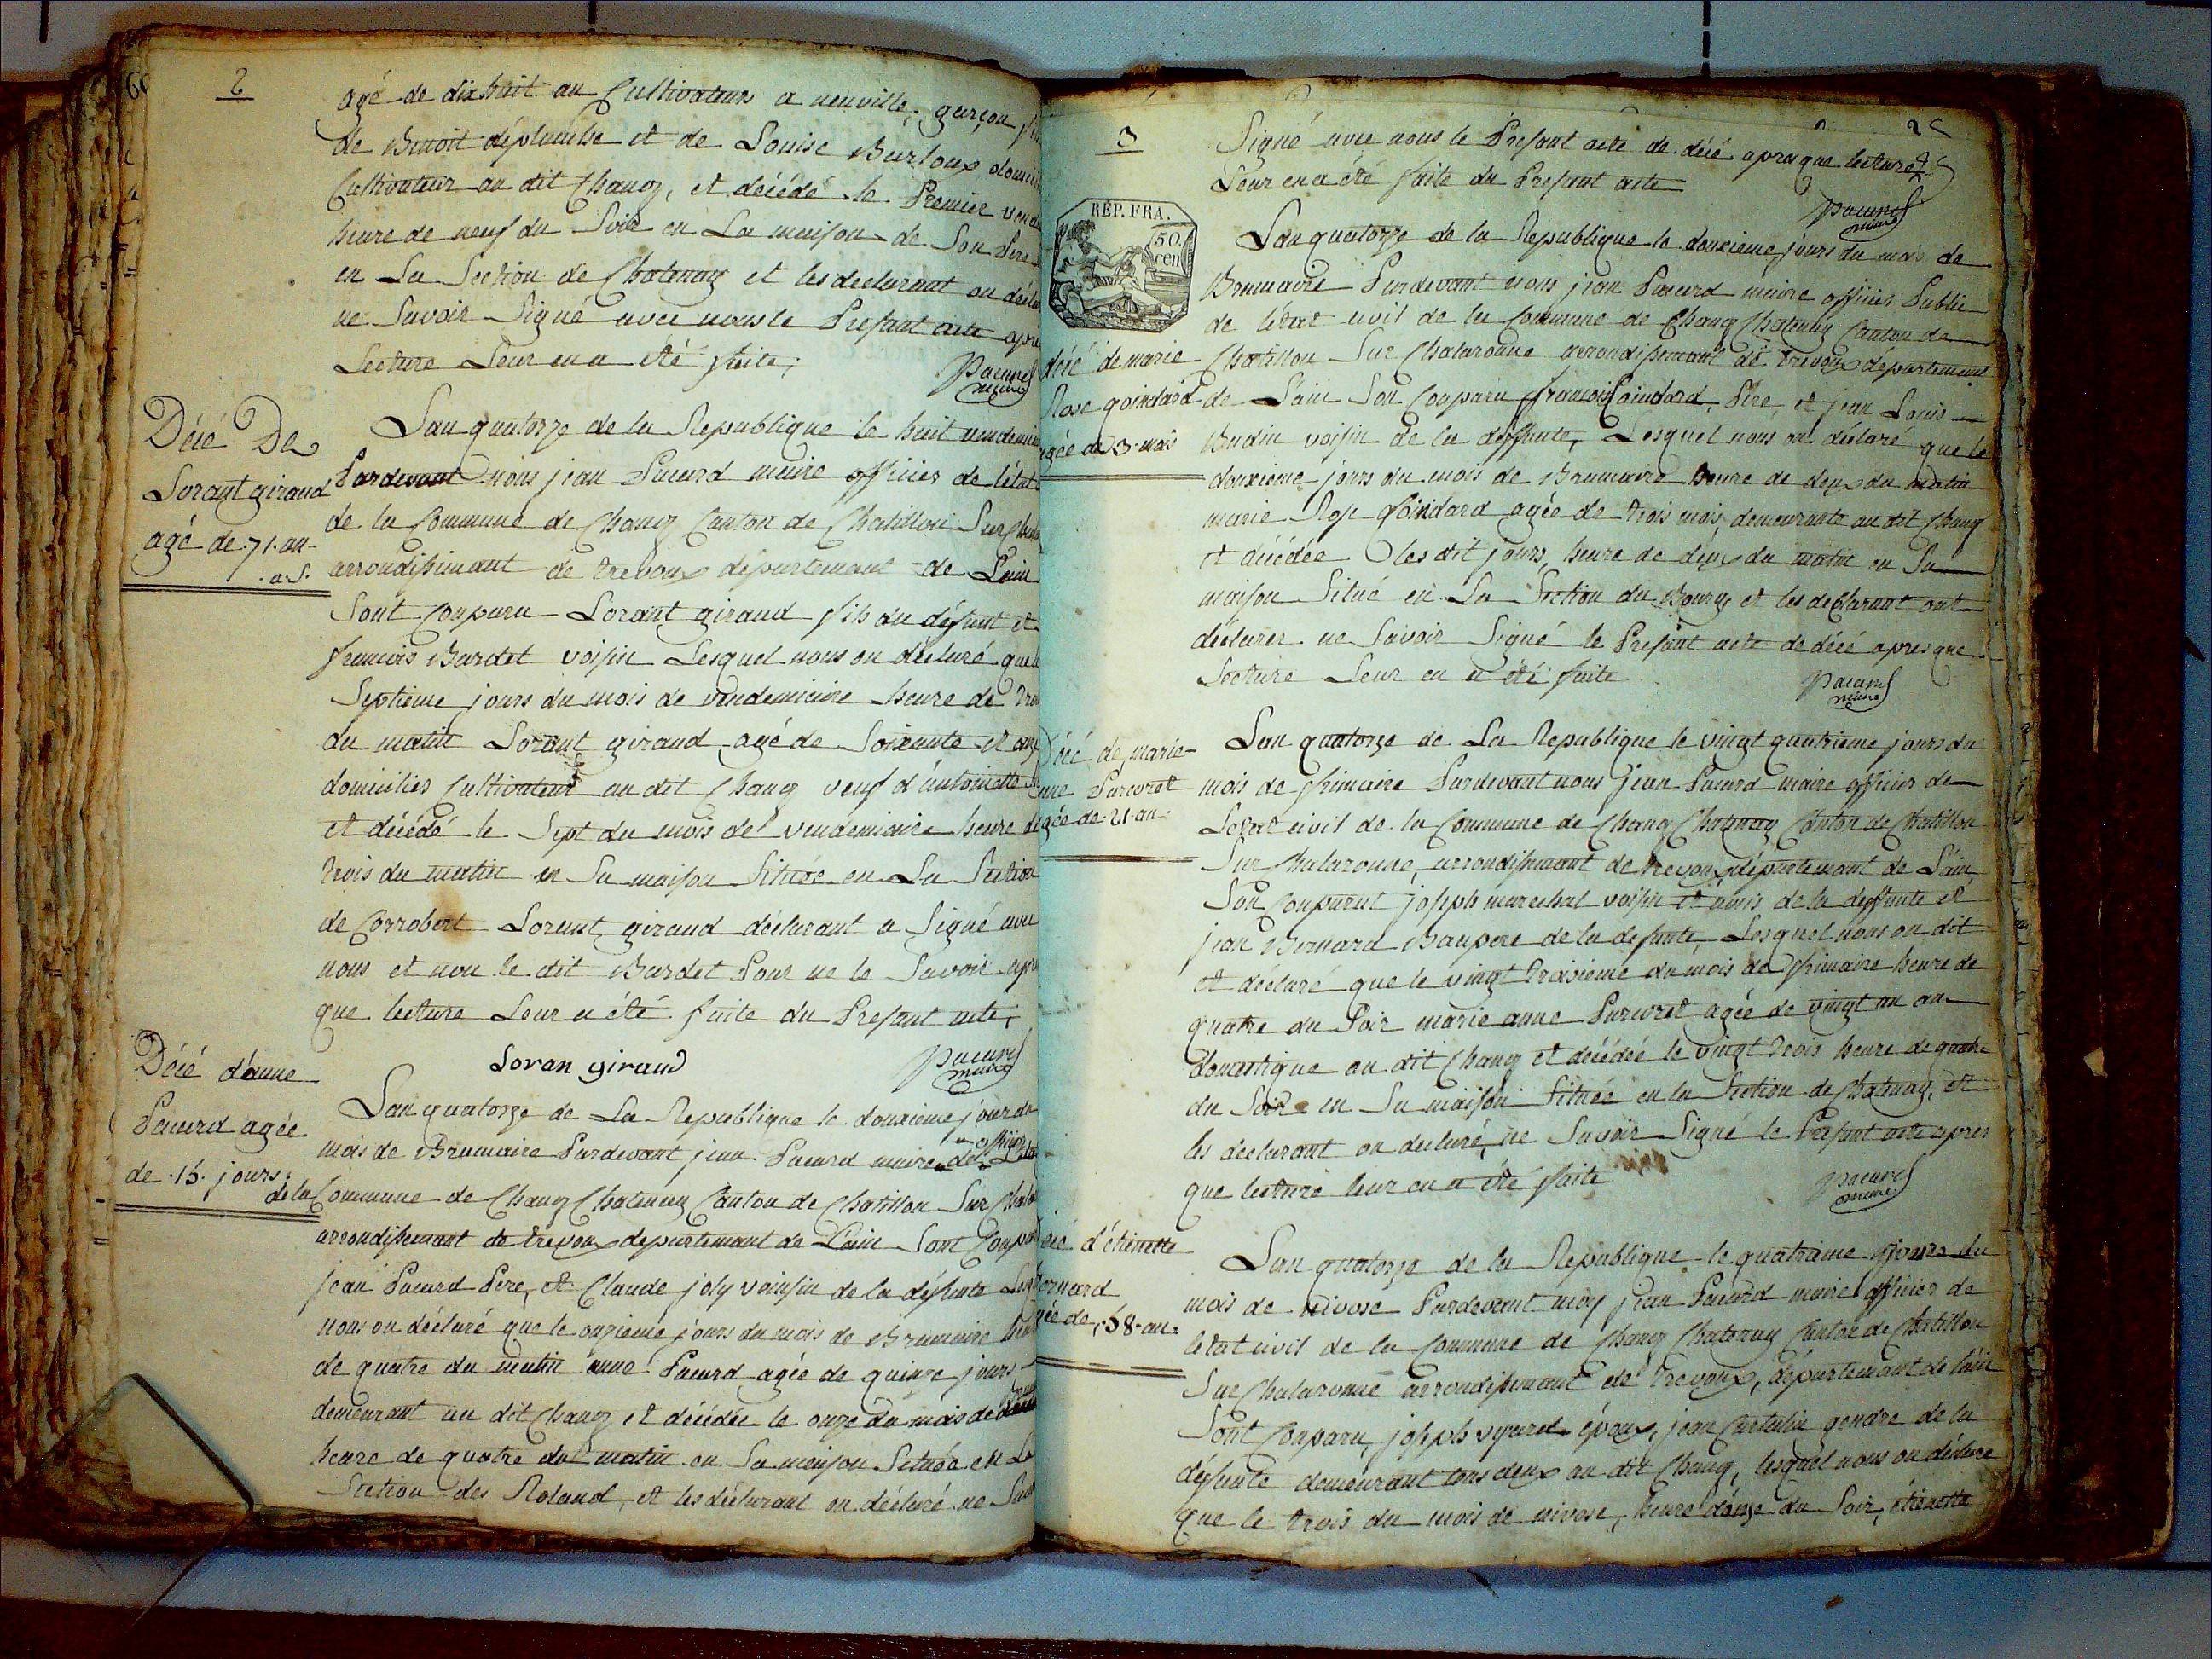 2
agé de dix huit an Cultivateur a neuville, garçon
de Benoit déplanche et de Louise Burloux
Cultivateur au dit Chanoz, et décédé le Premier
heure de neuf du Soir en La maison de Son Pere
en La Section de Chatenay et les declarant on
ne Savoir Signé avec nous le Present acte
Lecture Leur en a été faite;
Pacard
maire
Décé De
Lorant giraud
agé de 71. an
. a.S.
Lan quatorze de la Republique le huit
Pardevant nous jean Pacard maire officier de l'état
de la Commune de Chanoz Canton de Chatillon Sur
arrondissemant de trevoux département de Lain
Sont Conparu Lorant giraud fils du défunt et
francois Bardet voisin Lesquel nous on déclaré que
Septieme jours du mois de vendemiaire heure de
du matin Lorant giraud agé de Soixante et onze
domicilies Cultivateur au dit Chanoz veuf d'antoinette
et décédé le Sept du mois de vendemiaire heure de
trois du matin en Sa maison Situés en La Section
de Corrobert Lorant giraud déclarant a Signé avec
nous et non le dit Bardet Pour ne le Savoir
que lecture Leur a été faite du Present acte;
Loran giraud
Pacard
maire
Décé d'anne
Pacard agée
de .15. jours
Lan quatorze de La Republique le douxieme jour du
mois de Brumaire Pardevant jean Pacard maire officier de L'état
de la Commune de Chanoz Chatenay Canton de Chatillon Sur
arrondissemant de trevoux departemant de Lain Sont
jean Pacard Pere, et Claude joly voinsin de la défunte
nous on déclaré que le onzieme jours du mois de Brumaire
de quatre du matin anne Pacard agée de quinze jours
demeurant au dit Chanoz et décédée le onze du mois de
heure de quatre du matin en Sa maison Située en La
Section des Roland, et les déclarant on déclaré ne
3
Signé avec nous le Present acte de décé apres que lecture
Leur en a été faite du Present acte
Pacard
maire
RÉP. FRA.
50.
cen
décé de marie
Rose goindard
agée de 3 mois
Lan quatorze de la Republique le douxieme jours du mois de
Brumaire Pardevant nous jean Pacard maire officier Public
de létat civil de la Commune de Chanoz Chatenay Canton de
Chatillon Sur Chalaronne arrondissemant de trevoux departement
de Lain Son Conparu francois Goindard, Père, et jean Louis
Budin voisin de la deffunte, Lesquel nous on déclaré que le
douxieme jours du mois de Brumaire heure de deux du matin
marie Rose Goindard agée de trois mois, demeurante au dit Chanoz
et décédée les dit jours, heure de deux du matin en Sa
maison Situé en La Section du Bourg, et les declarant ont
déclarer ne Savoir Signé le Present acte de décé apres que
Lecture Leur en a été faite
Pacard
maire
décé de marie
anne Parovet
agée de 21 an
Lan quatorze de La Republique le vingt quatrieme jours du
mois de frimaire Pardevant nous jean Pacard maire officier de
Létat civil de la Commune de Chanoz Chatenay Canton de Chatillon
Sur Chalaronne, arrondissemant de trevoux département de Lain
Son Conparut joseph marechal voisin et amis de la deffunte et
jean Bernard Baupere de la defunte, Lesquel nous on dit
et déclaré que le vingt troisieme du mois de frimaire heure de
quatre du Soir marie anne Parovet agée de vingt un an
domestique au dit Chanoz et décédée le vingt trois heure de quatre
du Soir en Sa maison Située en la Section de Chatenay, et
les declarant on declaré, ne Savoir Signé le Present acte apres
que lecture leur en a été faite
Pacard
maire
décé d'étienette
Bernard
agée de .58. an
Lan quatorze de la Republique le quatrieme jours du
mois de nivose Pardevant moy jean Pacard maire officier de
létat civil de la Commune de Chanoz Chatenay Canton de Chatillon
Sur Chalaronne arrondissemant de trevoux, département de lain
Sont Conparu, joseph époux, jean gendre de la
défunte demeurant tous deux au dit Chanoz, lesquel nous on déclaré
que le trois du mois de nivose, heure donze du Soir, étienette